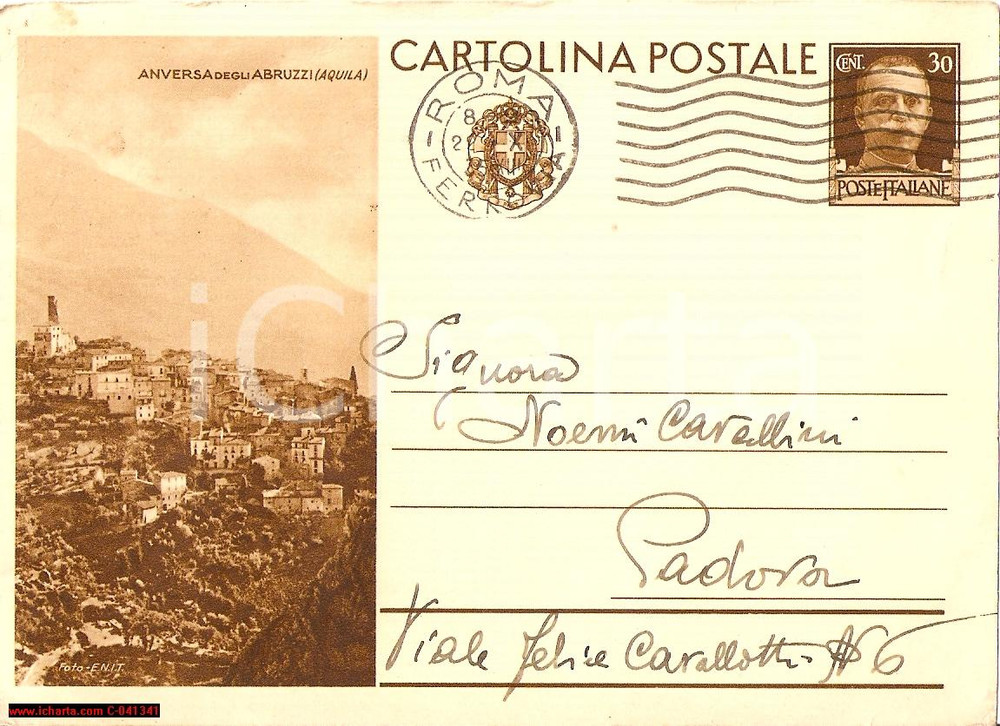 CARTOLINA POSTALE
ANVERSA DEGLI ABRUZZI (AQUILA)
CENT. 30
POSTE ITALIANE
ROMA
8
X
FERROVIA
iCharta
Signora
Noemi Cavallini
Padova
Viale Felice Cavallotti N 6
Foto-E.N.I.T.
www.icharta.com C-041341